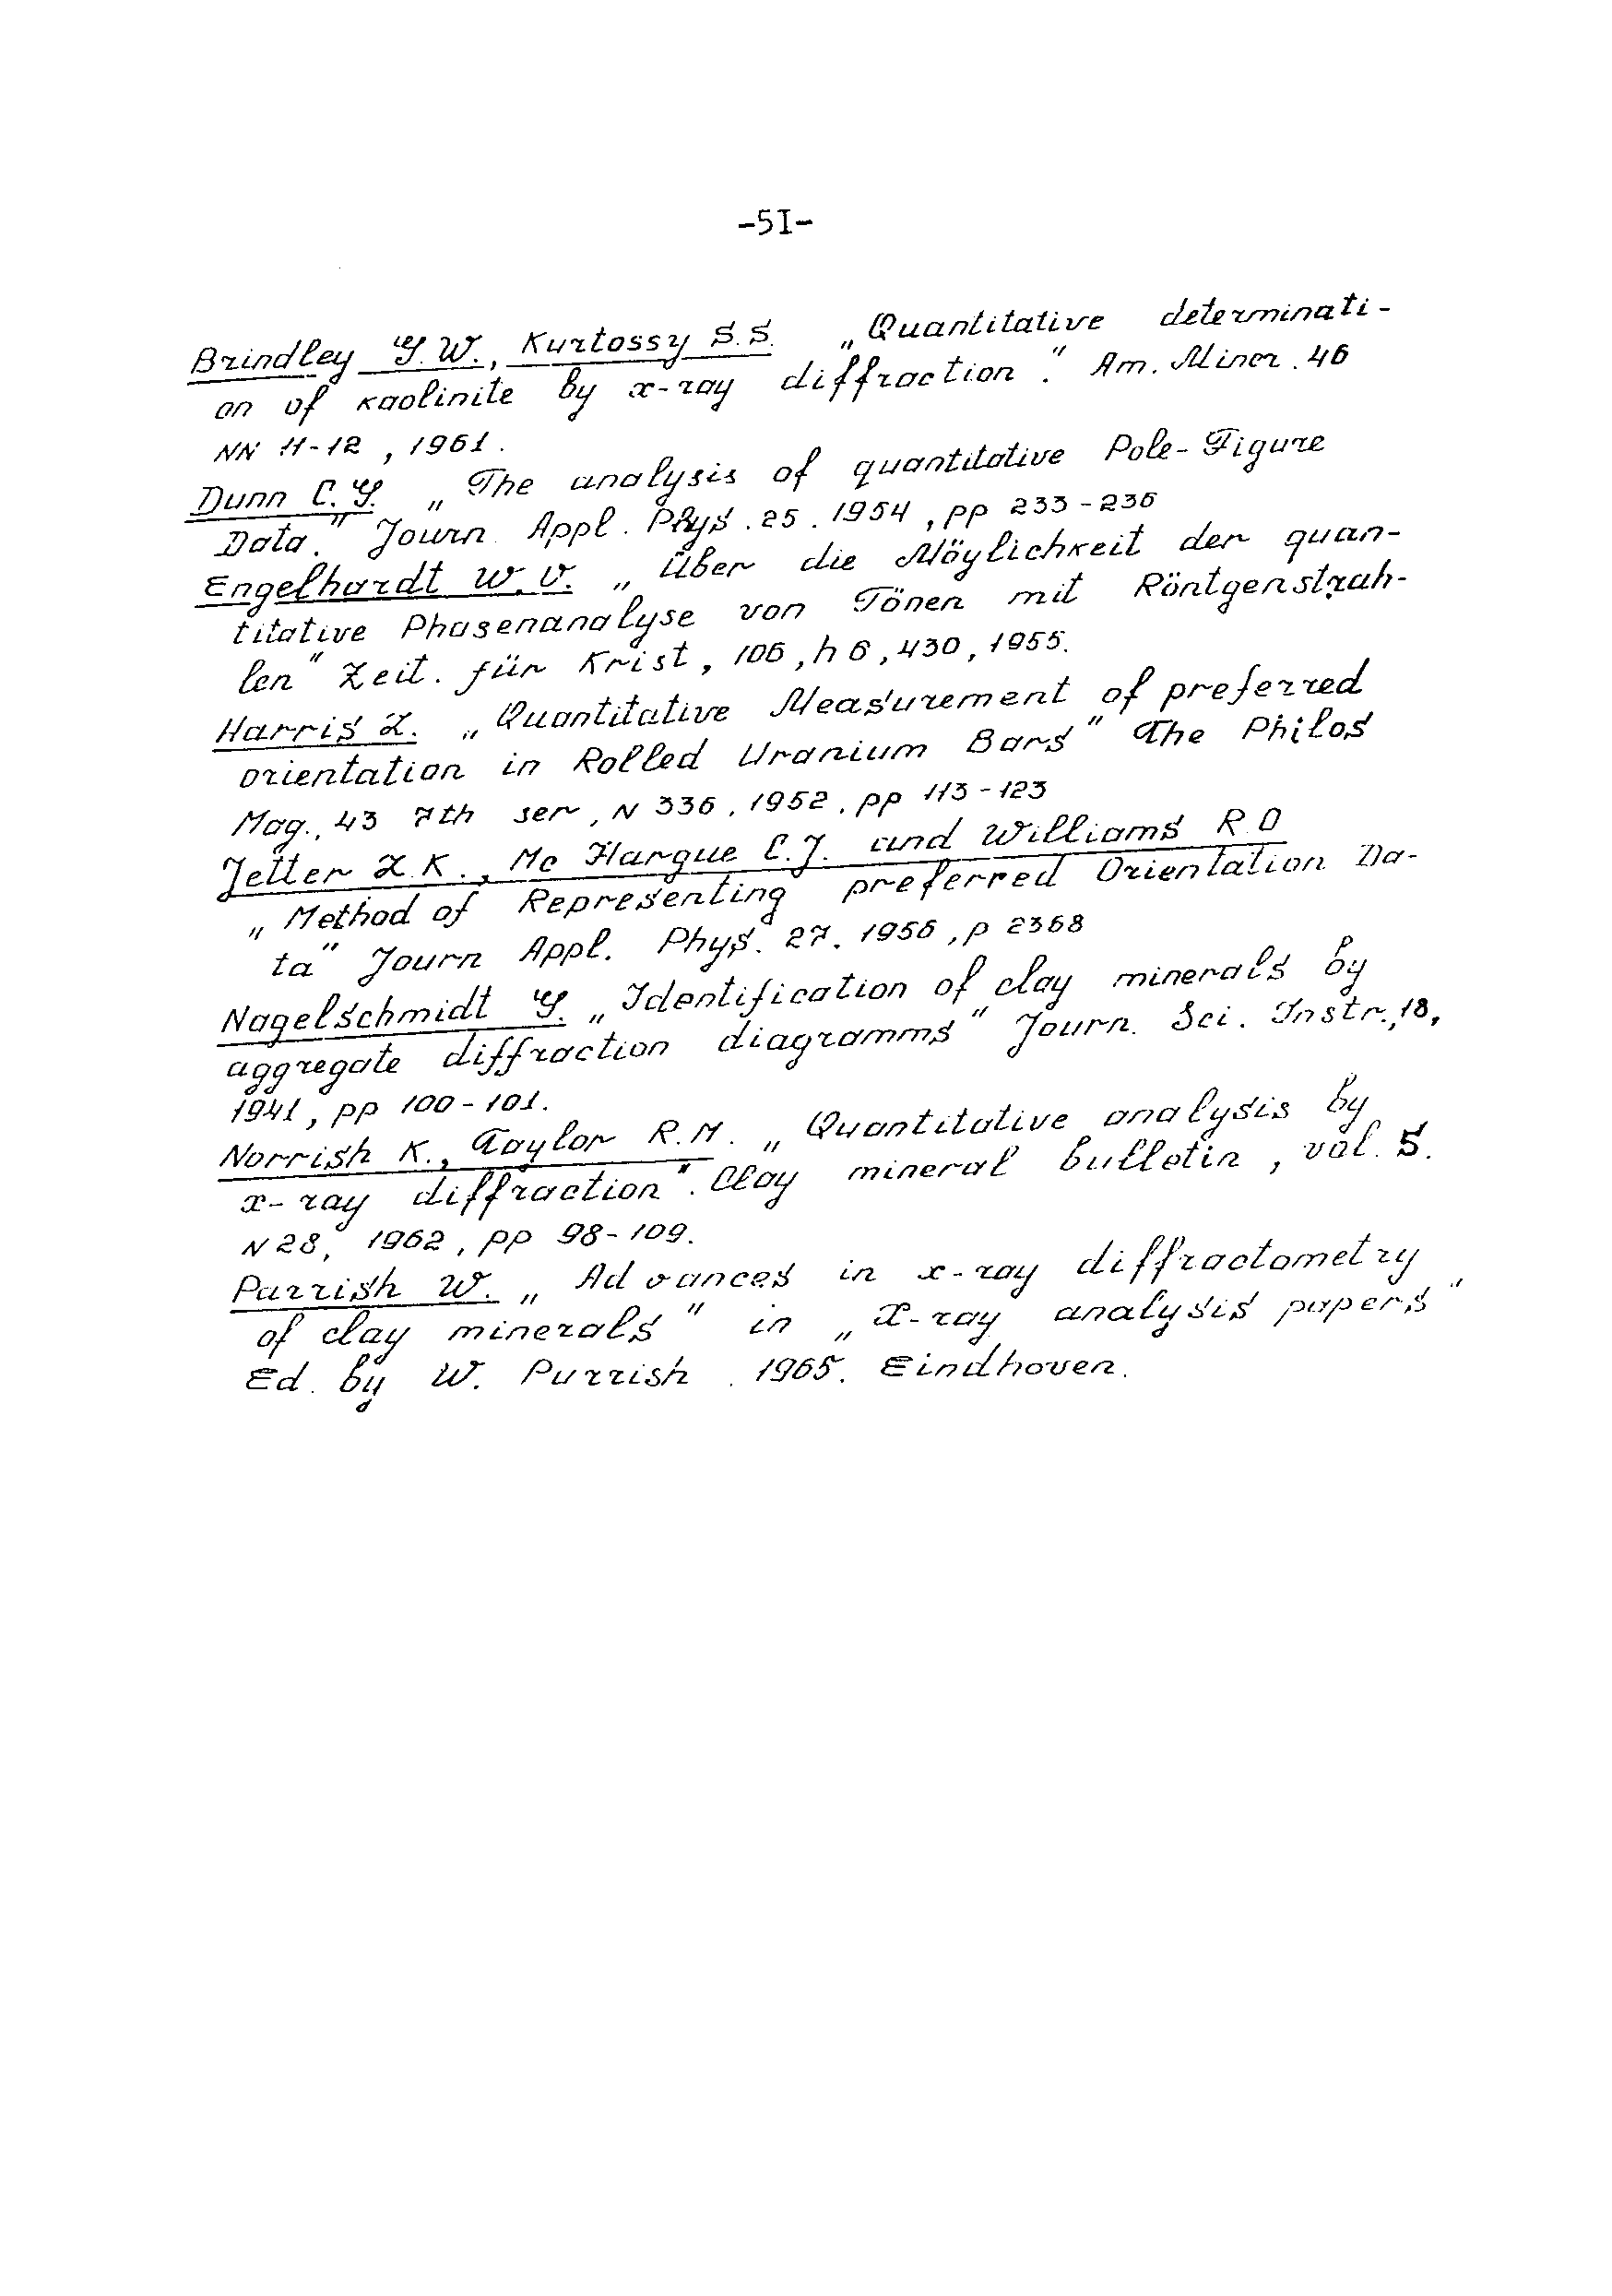 -5I-
Brindley G.W., Kurtossy S.S. „Quantitative determinati-
on of kaolinite by x-ray diffraction." Am. Miner. 46
NN 11-12, 1961.
Dunn C.G. „The analysis of quantitative Pole-Figure
Data." Journ Appl. Phys. 25. 1954, pp 233-236
Engelhardt W.v. „Über die Möylichkeit der quan-
titative Phasenanalyse von Tönen mit Röntgenstrah-
len" Zeit. für Krist, 106, h 6, 430, 1955.
Harris L. „Quantitative Measurement of preferred
orientation in Rolled Uranium Bars" The Philos
Mag., 43 7th ser, N 336, 1952, pp 113-123
Jetter L.K., Mc Hargue C.J. and Williams R O
„Method of Representing preferred Orientation Da-
ta" Journ Appl. Phys. 27. 1956, p 2368
Nagelschmidt G. „Identification of clay minerals by
aggregate diffraction diagramms" Journ. Sci. Instr., 18,
1941, pp 100-101.
Norrish K., Taylor R.M. „Quantitative analysis by
x-ray diffraction". Clay mineral bulletin, vol. 5.
N 28, 1962, pp 98-109.
Parrish W. „Advances in x-ray diffractometry
of clay minerals" in „X-ray analysis papers"
Ed. by W. Purrish. 1965. Eindhoven.